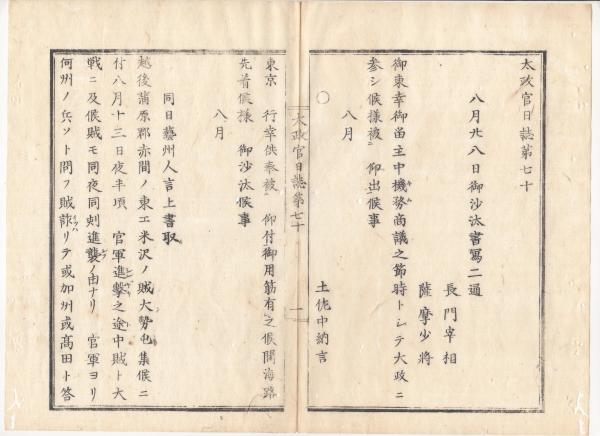 太政官日誌第七十
八月廿八日御沙汰書寫二通
長門宰相
薩摩少將
御東幸御留主中機務商議之節時トシテ大政ニ
参シ候様被 仰出候事
八月
○
土佐中納言
太政官日誌第七十 一
東京 行幸供奉被 仰付御用筋有之候間海路
先着候様 御沙汰候事
八月
同日藝州人言上書取
越後蒲原郡赤間ノ東エ米沢ノ賊大勢屯集候ニ
付八月十三日夜半頃 官軍進撃之途中賊ト大
戦ニ及候賊モ同夜同刻進襲ノ由ナリ 官軍ヨリ
何州ノ兵ソト問フ賊詐リテ或加州或髙田ト答